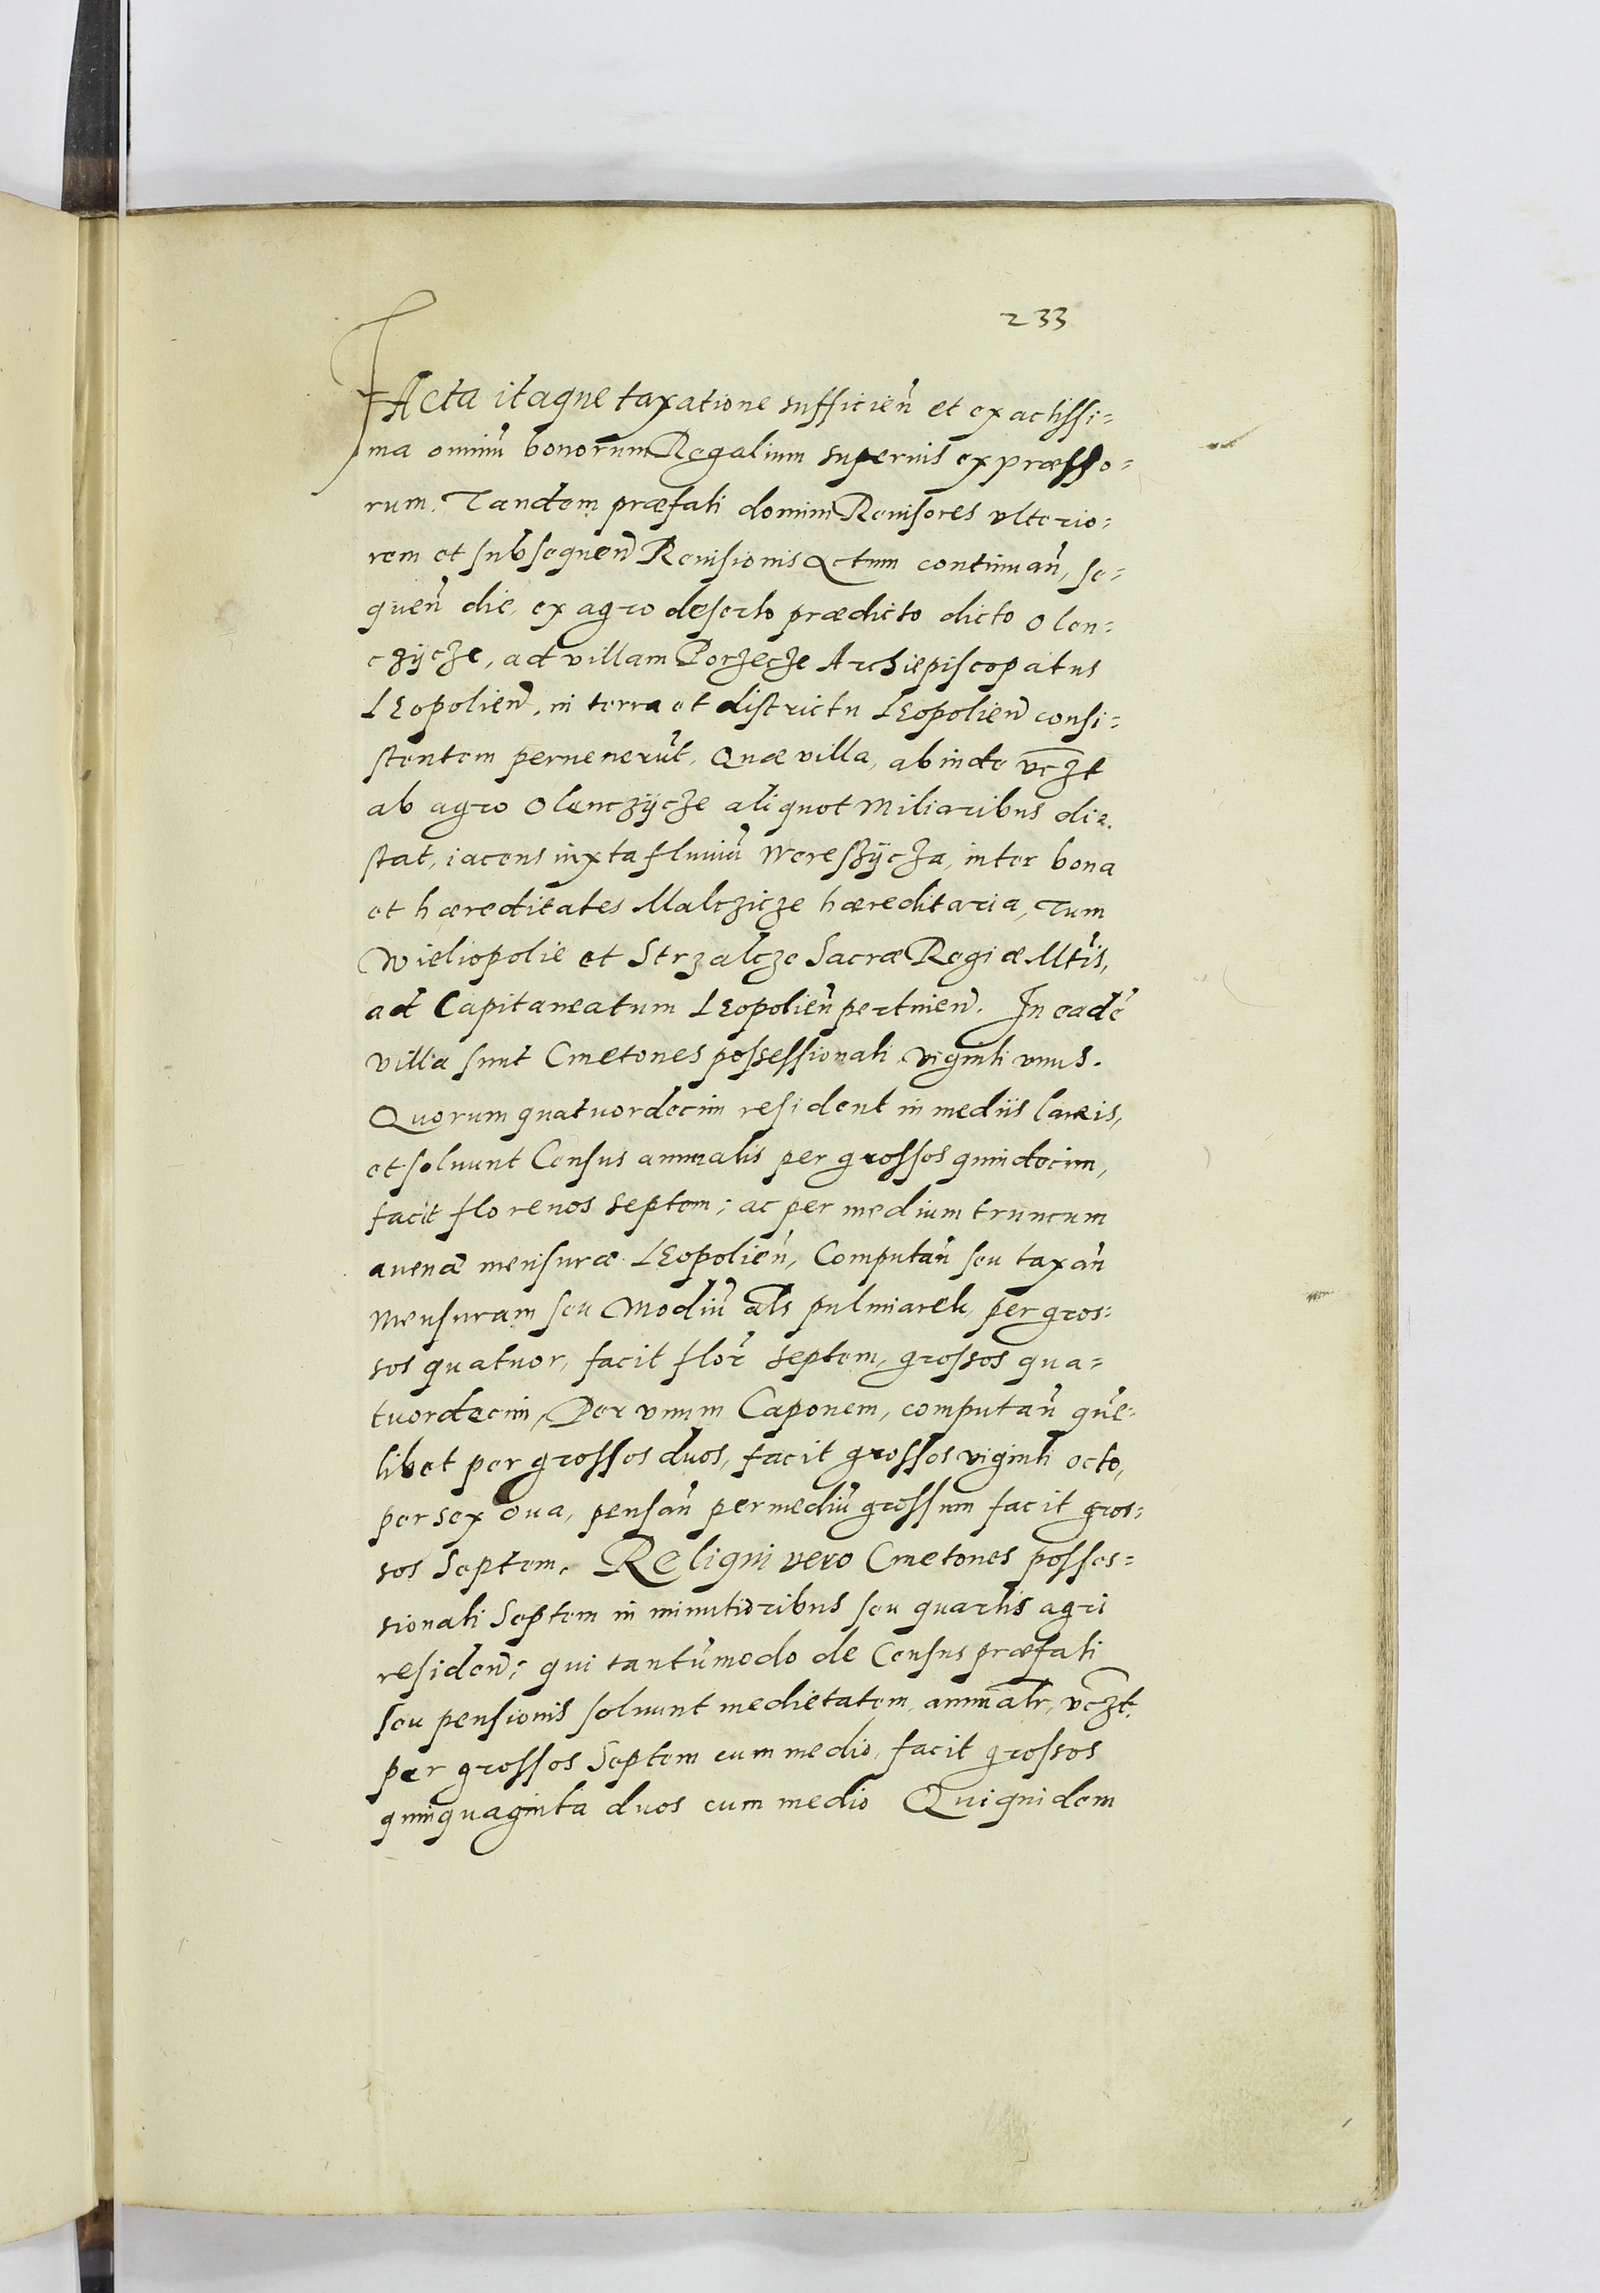 233
FActa itaque taxatione sufficien̄ et exactissi=
ma omniū bonorum Regalium superius expræsso=
rum. Tandem præfati domini Reuisores vlterio=
rem et subsequen̄ Reuisionis Actum continuan̄, se=
quen̄ die, ex agro deserto prædicto dicto Olen=
czÿcze, ad villam Porzecze Archiepiscopatus
LEopolien̄, in terra et districtu LEopolien̄ consi=
stentem peruenerūt. Quæ villa, ab inde vczt
ab agro Olenczÿcze aliquot Miliaribus di=
stat, iacens iuxta fluuiū Wereszÿcza, inter bona
et hæreditates Malczicze hæreditaria, Tum
Wieliopolie et Strzalcze Sacræ Regiæ Mtis,
ad Capitaneatum LEopolien̄ pertinen̄. In eadē
villa sunt Cmetones possessionati viginti vnus.
Quorum quatuordecim resident in mediis laneis,
et soluunt Census annualis per grossos quindecim,
facit florenos septem; ac per medium truncum
auenæ mensuræ LEopolien̄, Computan̄ seu taxan̄
Mensuram seu Modiū als pulmiarek, per gros=
sos quatuor, facit flor̄ septem, grossos qua=
tuordecim, Per vnum Caponem, computan̄ quē=
libet per grossos duos, facit grossos viginti octo,
per sex oua, pensan̄ per mediū grossum facit gros=
sos Septem. Reliqui vero Cmetones posses=
sionati Septem in minutioribus seu quartis agri
residen̄; qui tantūmodo de Census præfati
seu pensionis soluunt medietatem annuatr̄, vczt.
per grossos Septem cum medio, facit grossos
quinquaginta duos cum medio Qui quidem